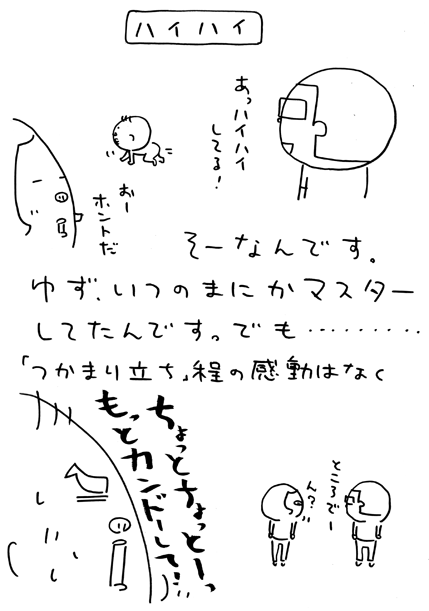 ハイハイ
あっハイハイ
してる!
おー
ホントだ
そーなんです。
ゆず、いつのまにかマスター
してたんですっでも………
「つかまり立ち」程の感動はなく
ちょっとちょっとーっ
もっとカンドーして!
ところでー
ん?